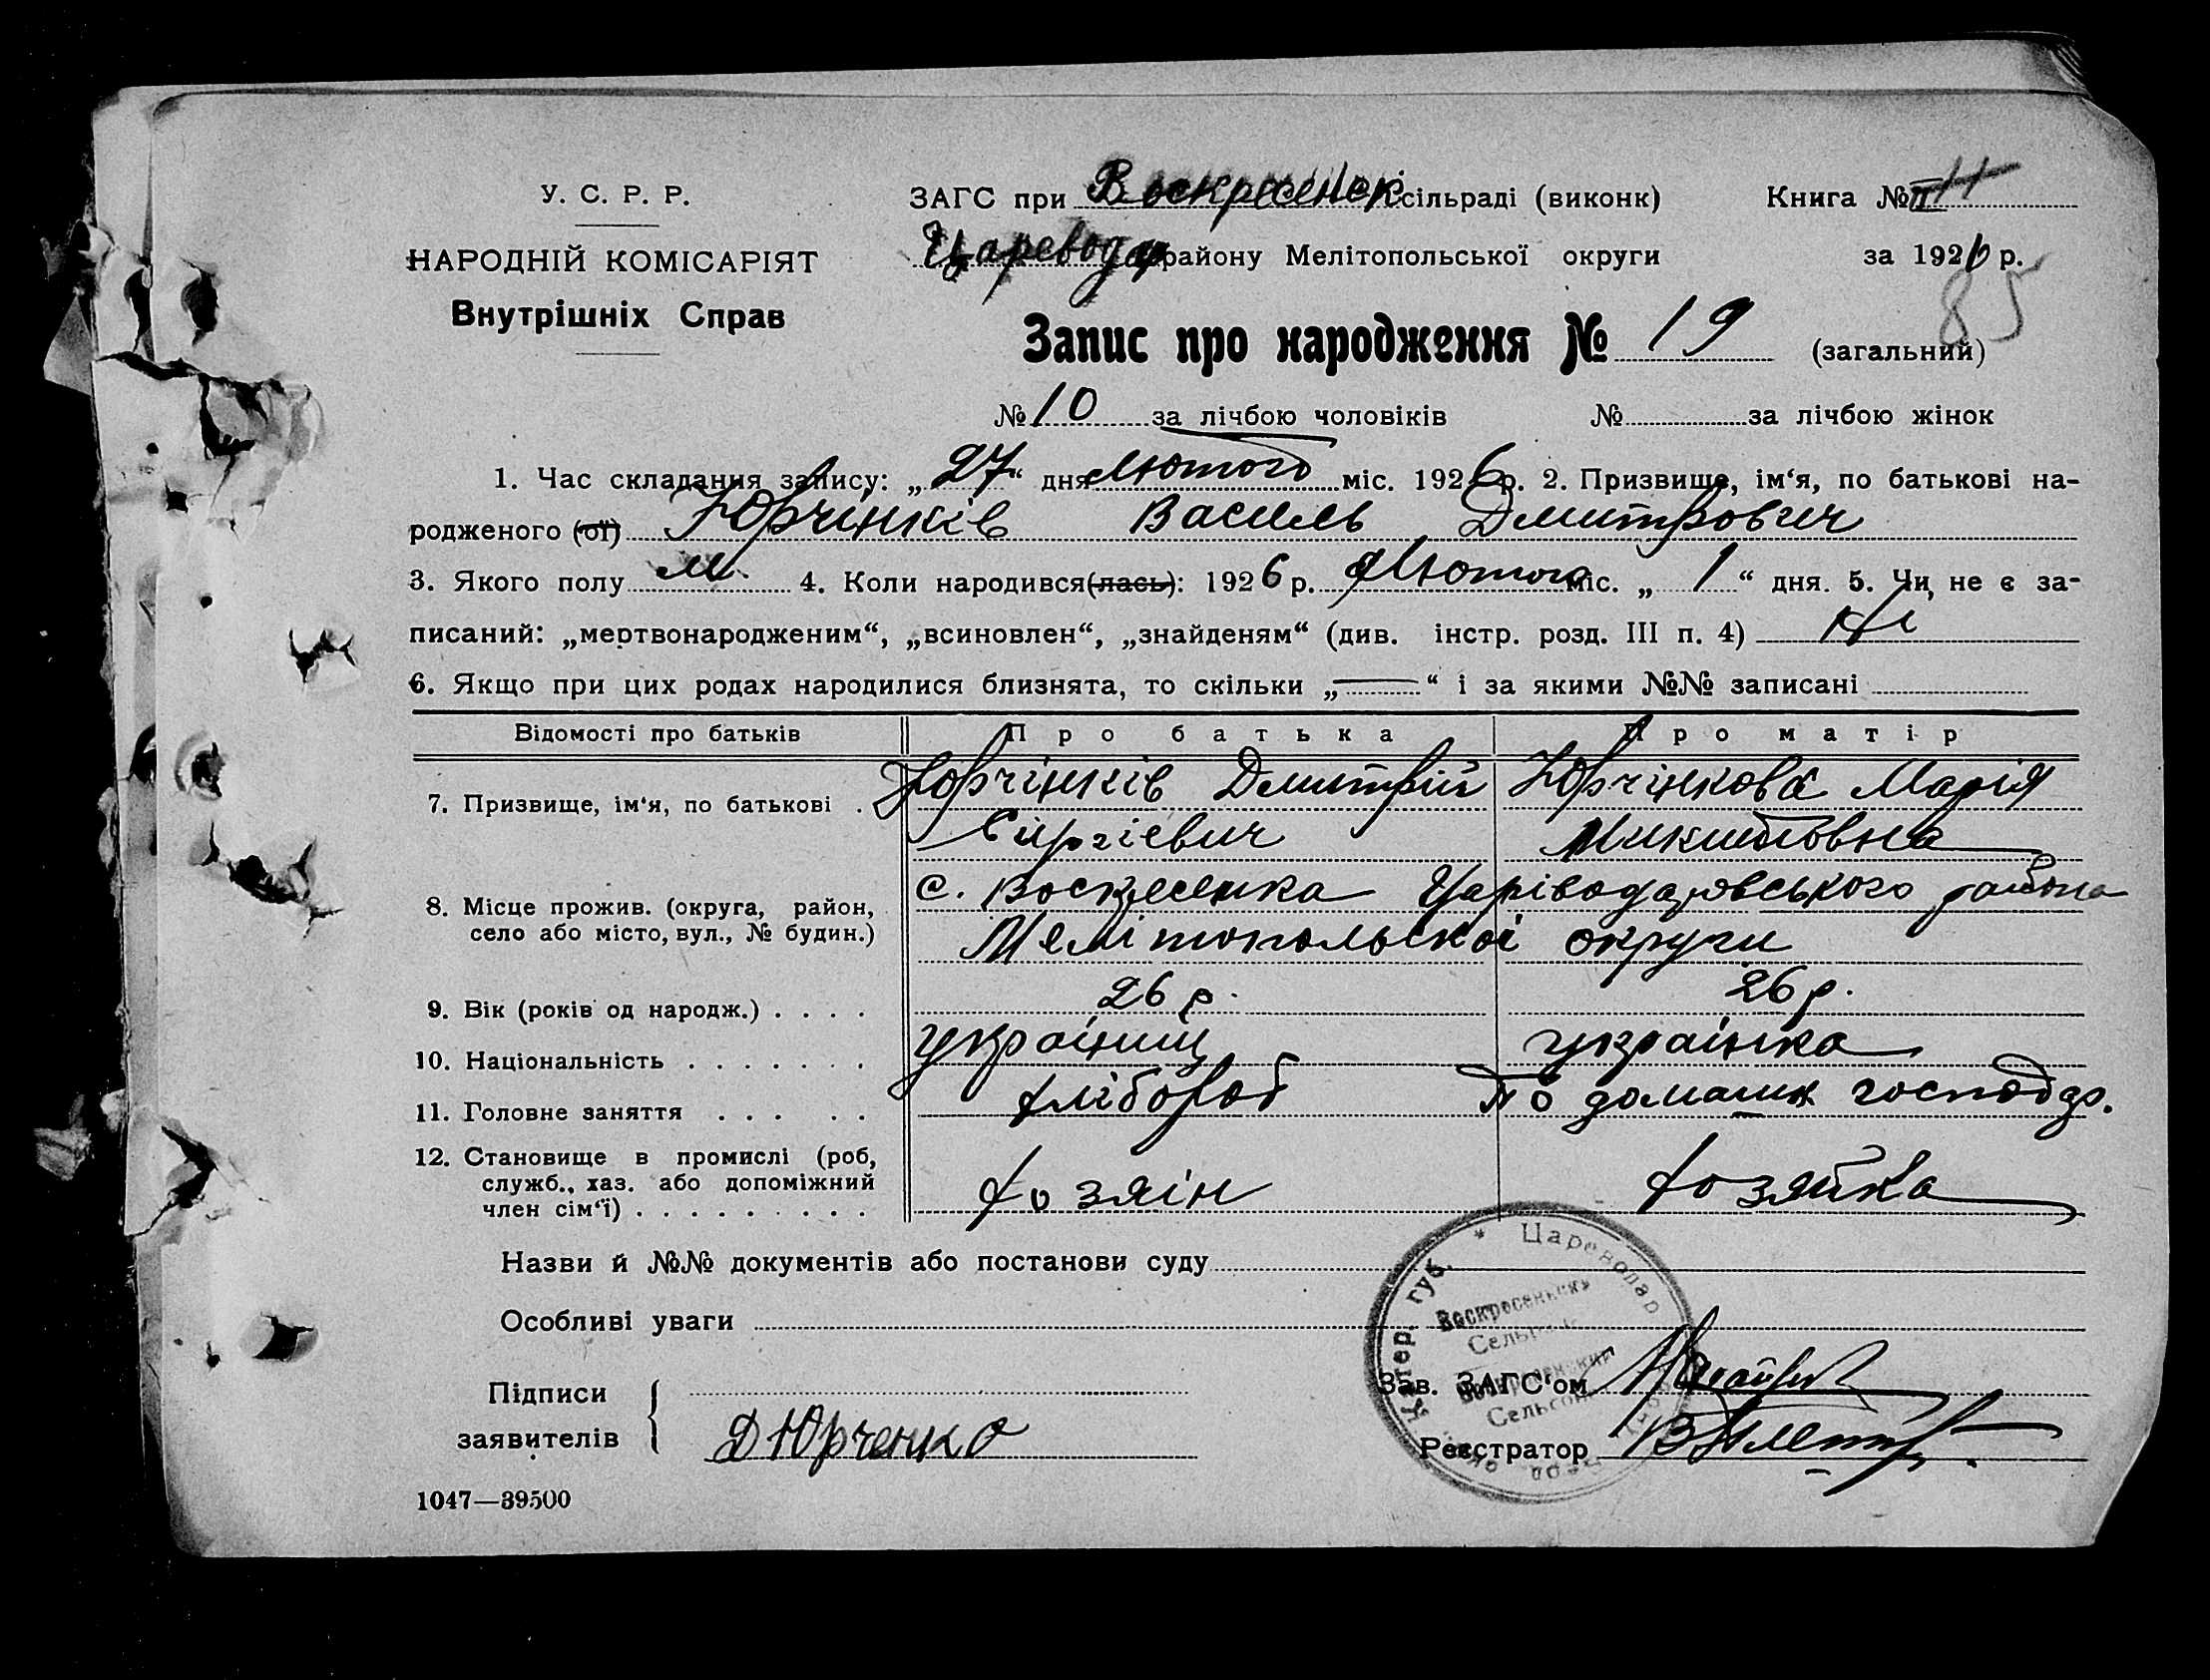 У. С. Р. Р.
НАРОДНІЙ КОМІСАРІЯТ
Внутрішніх Справ
ЗАГС при Воскресенск сільраді (виконк)
Царевода району Мелітопольської округи
Книга №
за 1926 р.
85
Запис про народження № 19 (загальний)
№ 10 за лічбою чоловіків № за лічбою жінок
1. Час складання запису: „27“ дня Лютого міс. 1926 р. 2. Призвище, ім‘я, по батькові на-
родженого (ої) Юрчінків Василь Дмитрович
3. Якого полу м. 4. Коли народився(лась): 1926 р. Лютого міс. „1“ дня. 5. Чи не є за-
писаний: „мертвонародженим“, „всиновлен“, „знайденям“ (див. інстр. розд. III п. 4) Ні
6. Якщо при цих родах народилися близнята, то скільки „—“ і за якими №№ записані
Відомості про батьків Про батька Про матір
7. Призвище, ім‘я, по батькові . Юрчінків Дмитрій Юрчінкова Марія
Сіргієвич Микитовна
8. Місце прожив. (округа, район, с. Воскресенка Царіводаровського района
село або місто, вул., № будин.) Мелітопольскоі округи
9. Вік (років од народж.) . . . . 26 р. 26 р.
10. Національність . . . . . . . украіниц украінка
11. Головне заняття . . . . . хлібороб По домашн господар.
12. Становище в промислі (роб,
служб., хаз. або допоміжний хозяін хозяйка
член сім‘ї) . . . . . . . . .
Назви й №№ документів або постанови суду
Особливі уваги
Катер. губ. * Цареводар
Воскресеньск
Підписи
заявителів Д Юрченко
Зав. ЗАГС‘ом
Реєстратор
1047—39500